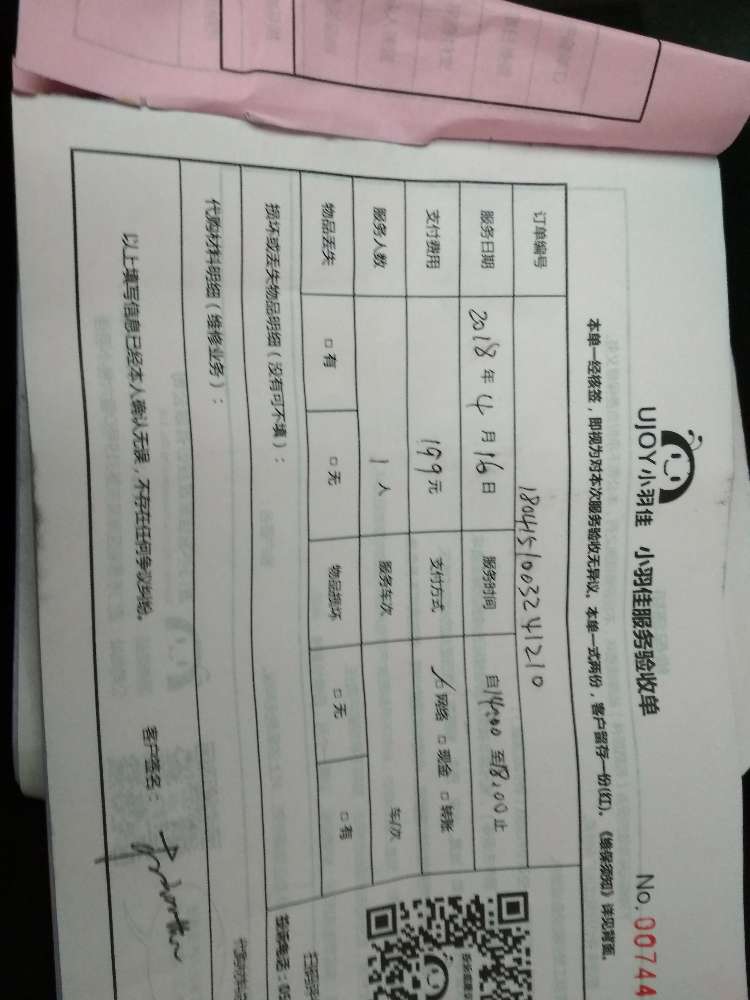 UJOY小羽佳 小羽佳服务验收单
No. 00744
本单一经核签，即视为对本次服务验收无异议。本单一式两份，客户留存一份(红)。《维保须知》详见背面。
订单编号 1804151003241210
服务日期 2018年4月16日 服务时间 自14:00至18:00止
支付费用 199元 支付方式 ☑网络 □现金 □转账
服务人数 1人 服务车次 车/次
物品丢失 □有 □无 物品损坏 □无 □有
损坏或丢失物品明细（没有可不填）：
代购材料明细（维修业务）：
以上填写信息已经本人确认无误，不存在任何争议纠纷。
客户签名：